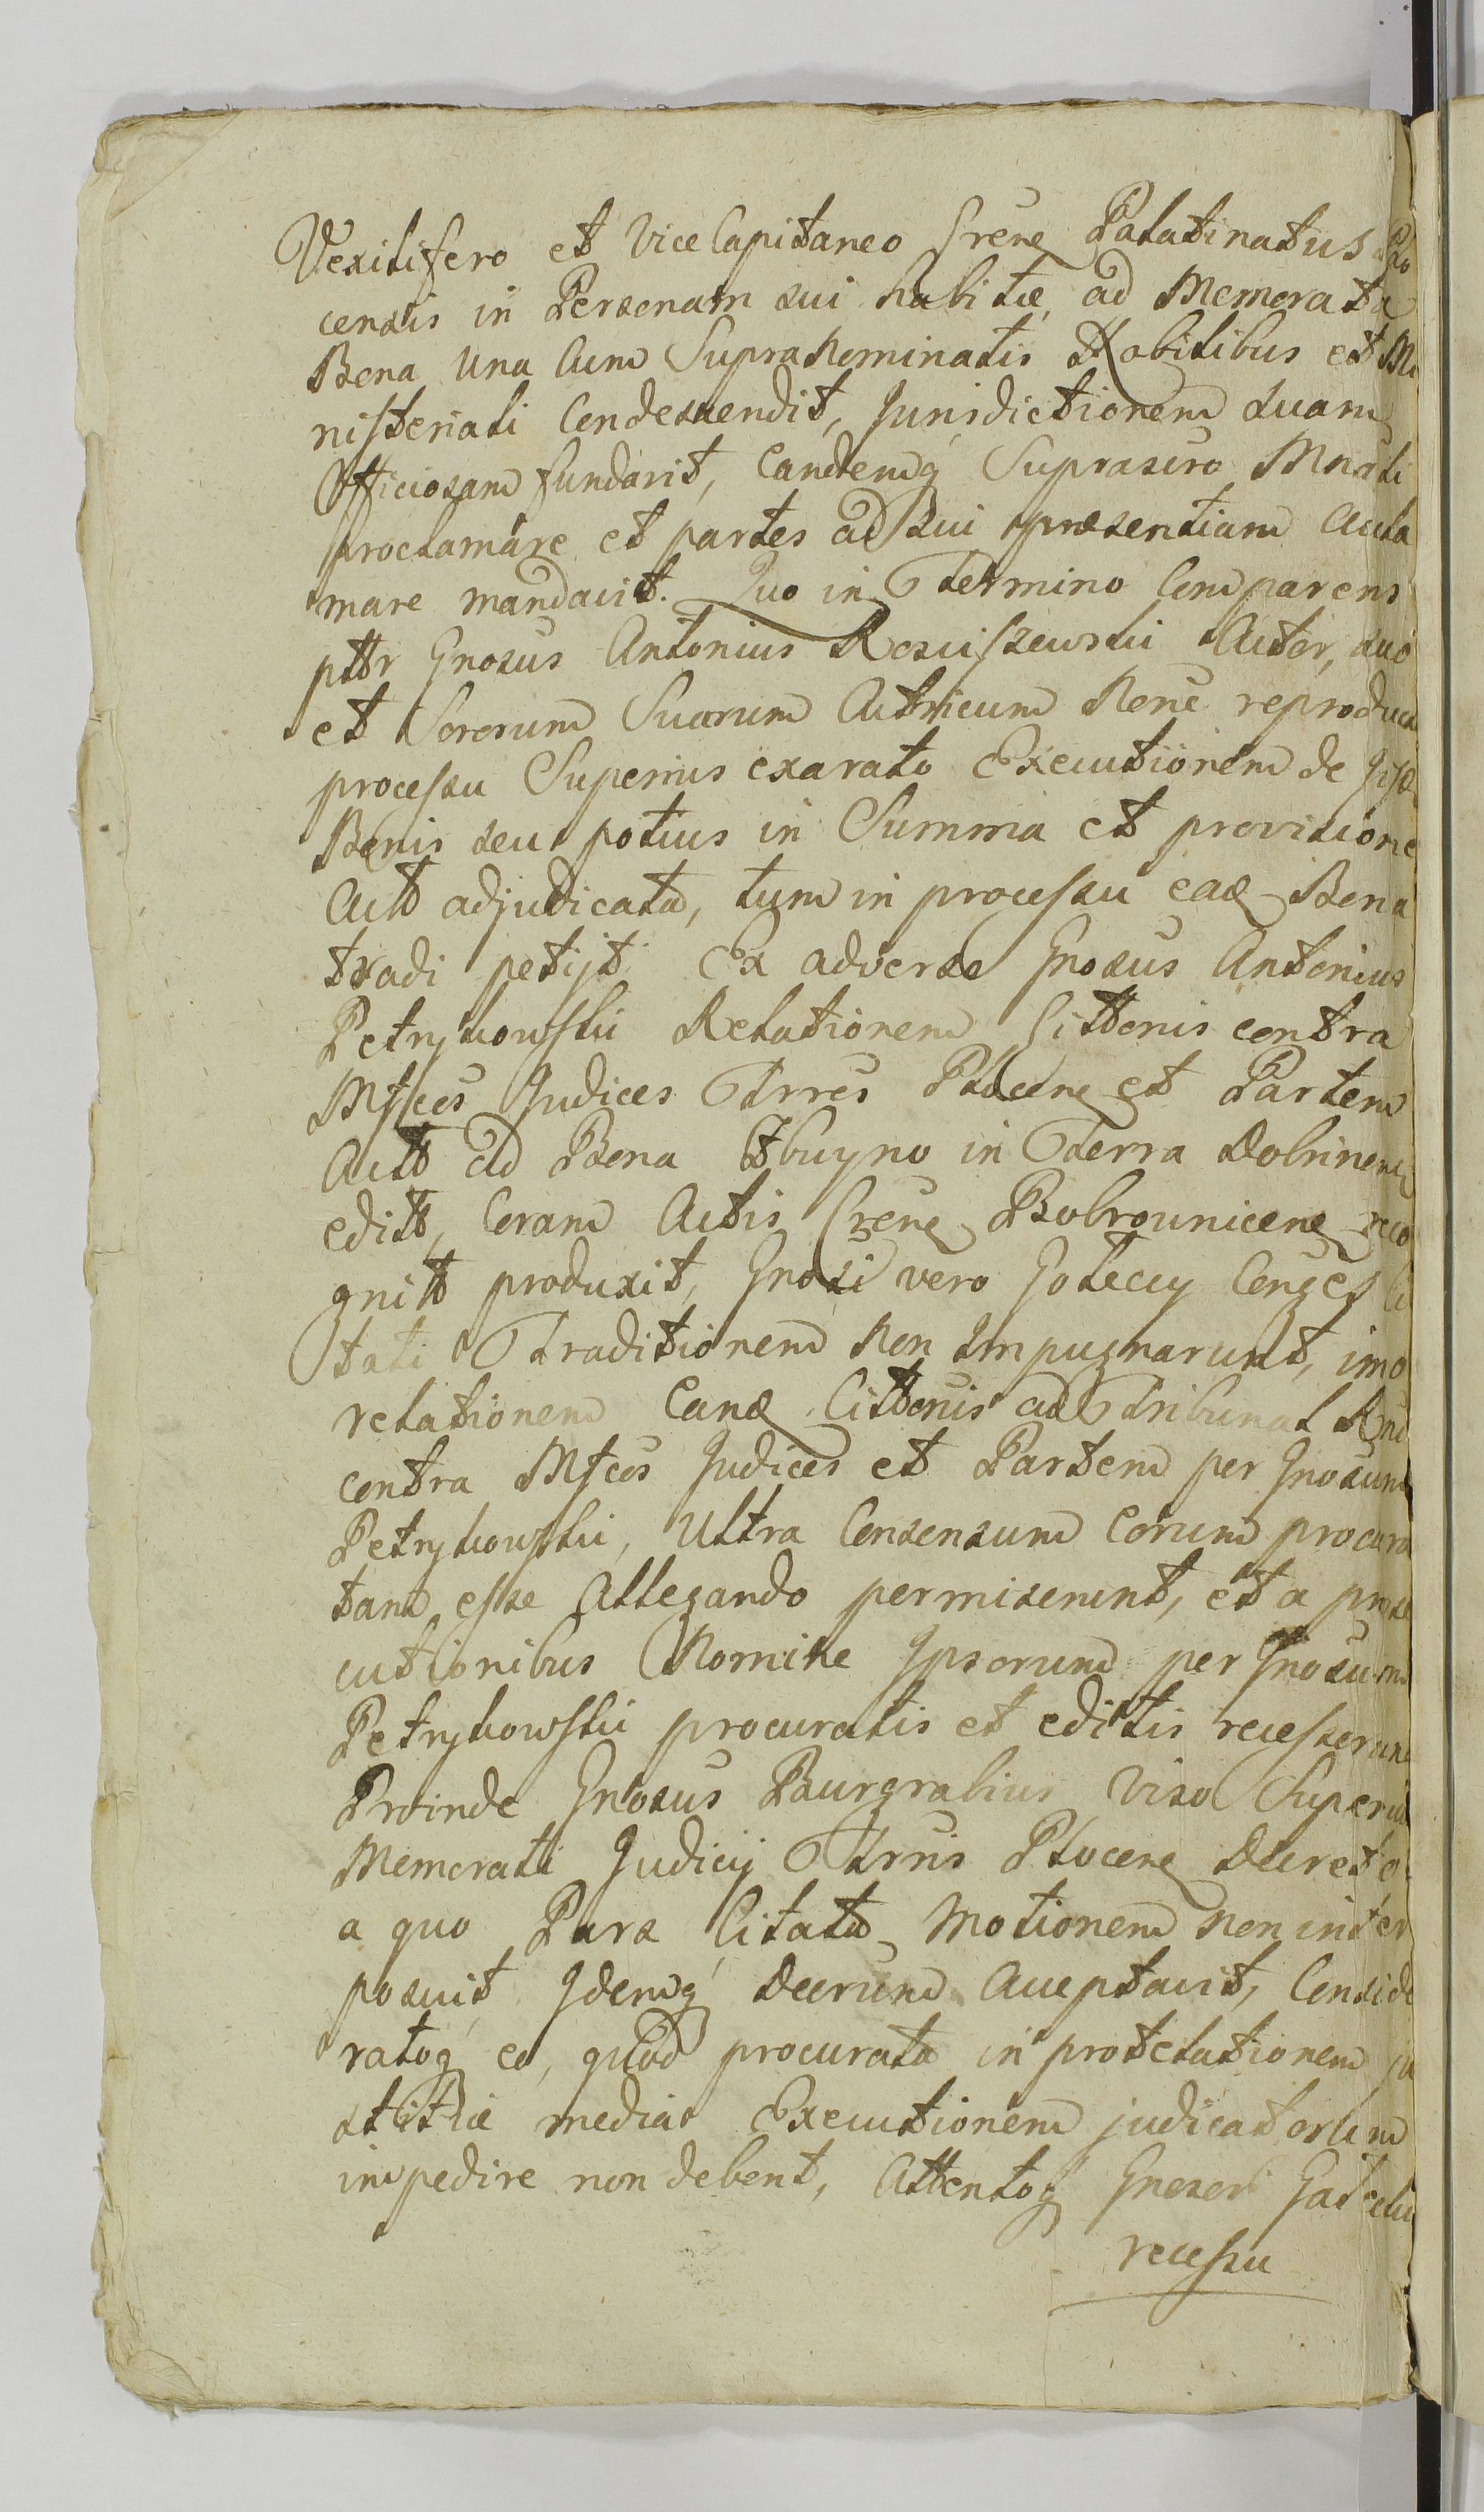 Vexilifero et Vice Capitaneo Crene Palatinatus Plo
censis in Personam sui habitæ, ad Memorata
Bona una cum Supra Nominatis Nobilibus et Mi
nisteriali Condescendit, Jurisdictionem suam
Officiosam fundavit, Eandemq Suprascro Mnali
proclamare et partes ad sui præsentiam Accla
mare mandavit. Quo in Termino Comparens
pttr Gnosus Antonius Rosciszewski Actor, suo
et Sororum Suarum Actricum Nene reproduca
processu Superius exarato Executionem de
Bonis seu potius in Summa et provisione
Actt adjudicata, tum in processu eas Bona
tradi petijt. Ex adverso Gnosus Antonius
Petrykowski Relationem Cittonis contra
Mfcos Judices Trres Plocene et Partem
Actt ad Bona Zbuyno in Terra Dobrinen
editt, Coram Actis Crene Bobrounicene reco
gnitt produxit, Gnosi vero Goteccy Conges Ci
tati Traditionem Non Impugnarunt, imo
relationem Eand Cittonis ad Tribunal Rni
contra Mfcos Judices et Partem per Gnosum
Petrykowski, Ultra Consensum Eorum procura
tam esse Allegando permiserunt, et a prose
cutionibus Nomine Ipsorum per Gnosum
Petrykowski procuratis et editis recesserunt
Proinde Gnosus Burgrabius Viso Superius
Memorati Judicij Trris Plocene Decreto
a quo Pars Citata Motionem non inter
posuit, Idemq Decrum Acceptavit, Conside
ratoq eo, quod procurata in protelationem ju
stitiæ media Executionem judicatorum
impedire non debent, Attentoq Gnosor
recessu